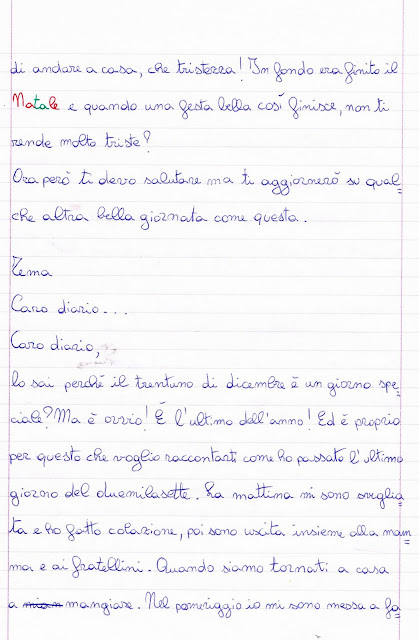 di andare a casa, che tristezza! In fondo era finito il
Natale e quando una festa bella così finisce, non ti
rende molto triste?
Ora però ti devo salutare ma ti aggiornerò su qual=
che altra bella giornata come questa.
Tema
Caro diario...
Caro diario,
lo sai perché il trentuno di dicembre è un giorno spe=
ciale? Ma è ovvio! È l'ultimo dell'anno! Ed è proprio
per questo che voglio raccontarti come ho passato l'ultimo
giorno del duemilasette. La mattina mi sono sveglia=
ta e ho fatto colazione, poi sono uscita insieme alla mam=
ma e ai fratellini. Quando siamo tornati a casa
a mangiare. Nel pomeriggio io mi sono messa a fa=